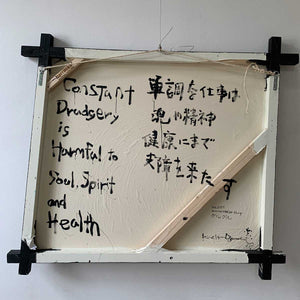 Constant
Drudgery
is
Harmful to
Soul, Spirit
and
Health
単調な仕事は
魂や精神
健康にまで
支障を来たす